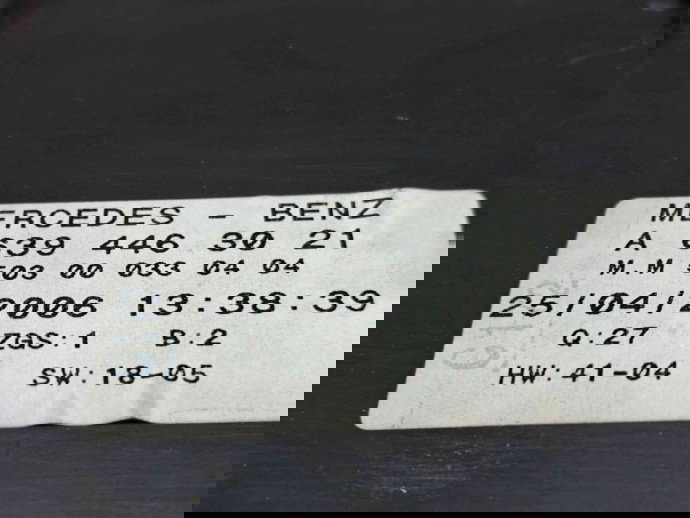 MERCEDES - BENZ
A 639 446 30 21
M.M 503 00 033 04 04
25/04/2006 13:38:39
ZGS:1 B:2 Q:27
SW:18-05 HW:41-04